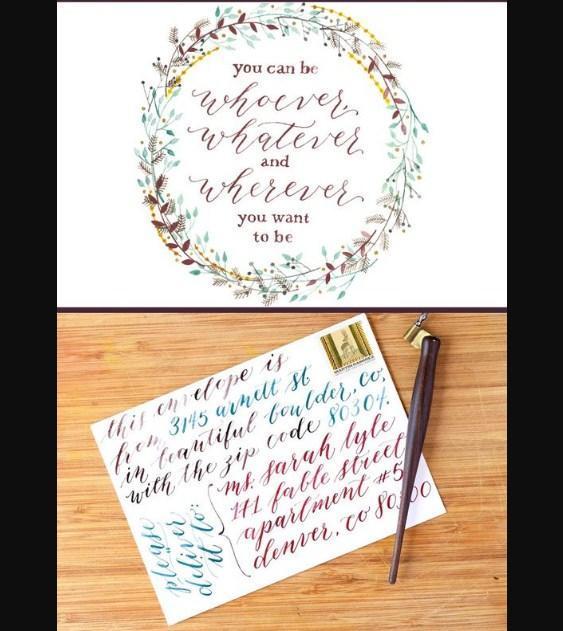 you can be
whoever,
whatever
and
wherever
you want
to be
this envelope is
from 3145 arnett st
in beautiful boulder, co,
with the zip code 80304.
please
deliver
it to:
ms. sarah lyle
171 fable street
apartment #5
denver, co 80300